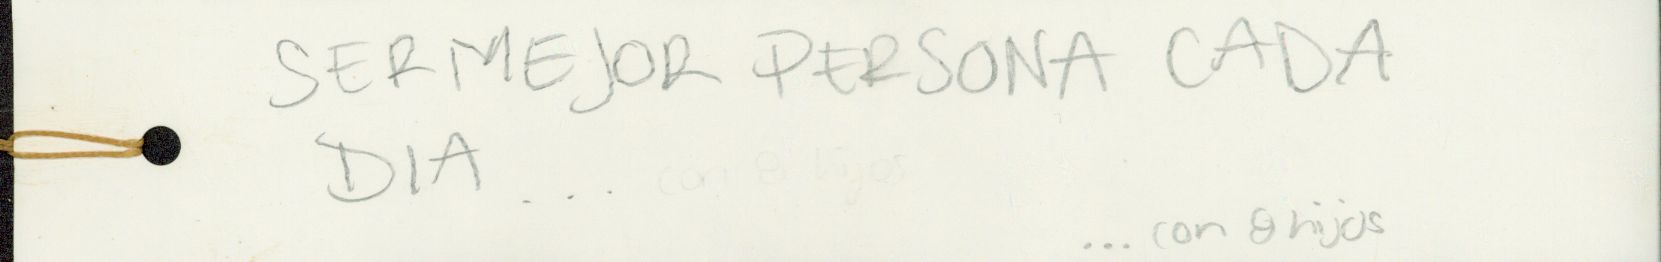 SER MEJOR PERSONA CADA
DIA... con 8 hijos
... con 8 hijos